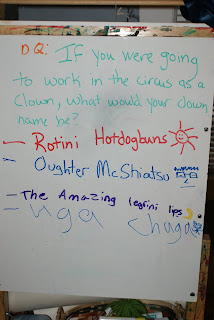 DQ: IF you were going
to work in the circus as a
Clown, what would your clown
name be?
- Rotini Hotdogbuns
- Oughter McShiatsu
- The Amazing legrini lips
- uga chuga